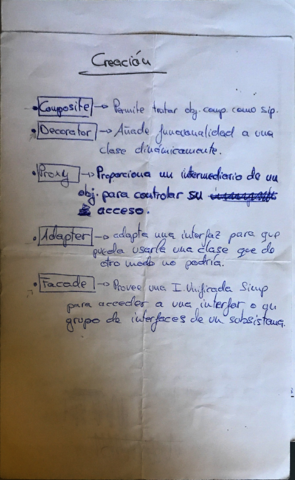 Creación
• Composite → Permite tratar obj. comp. como sip.
• Decorator → Añade funcionalidad a una
clase dinámicamente.
• Proxy → Proporciona un intermediario de un
obj. para controlar su
acceso.
• Adapter → adapta una interfaz para que
pueda usarla una clase que de
otro modo no podría.
• Facade → Provee una I. Unificada simp
para acceder a una interfaz o gu
grupo de interfaces de un subsistema.